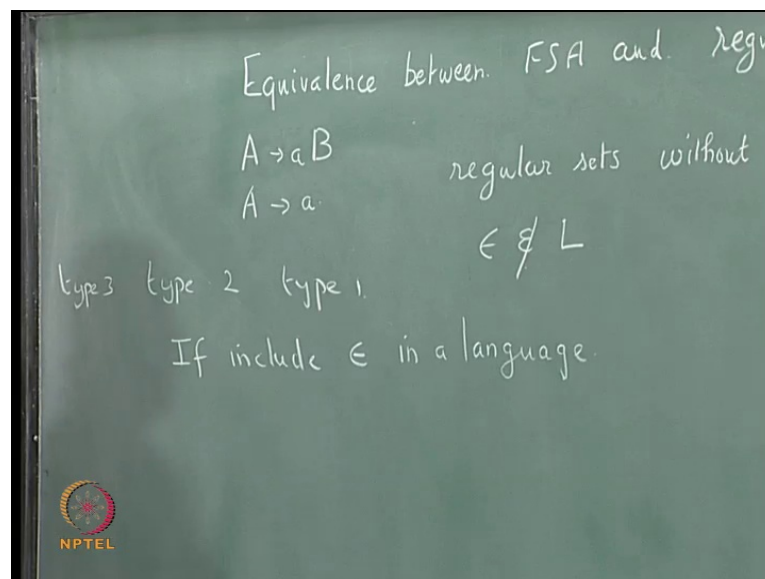 Equivalence between. FSA and. regu
A → a B
regular sets without
A → a.
ϵ ∉ L
type 3 type 2 type 1.
If include ϵ in a language.
NPTEL